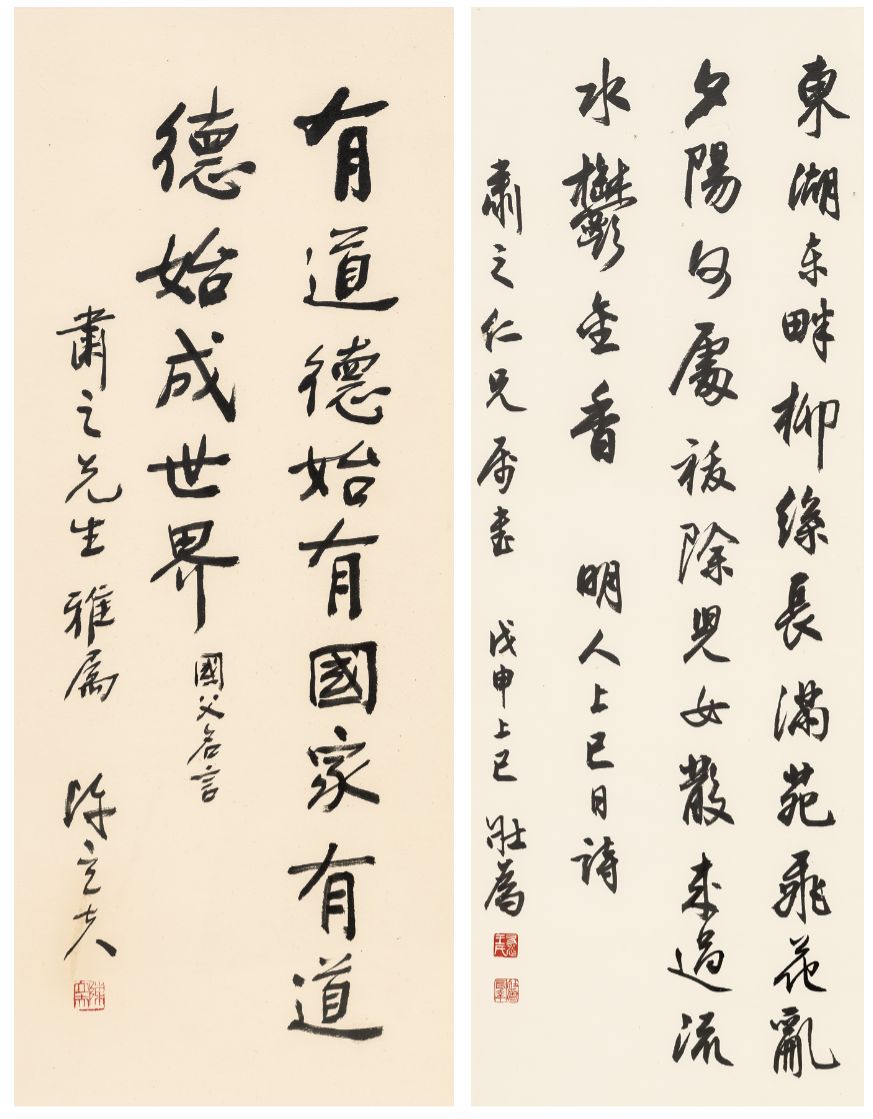 東湖东畔柳絛長滿苑飛花亂
夕陽何處祓除兒女散來過流
水鬱金香 明人上巳日詩
肅之仁兄属书 戊申上巳 壯為
有道德始有國家有道
德始成世界 國父名言
肅之先生雅属 陳立夫